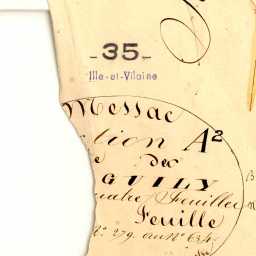 35
Ille-et-Vilaine
Messac
tion A2
de des
GUILY
Feuilles
Feuille
N° 279 au N° 634